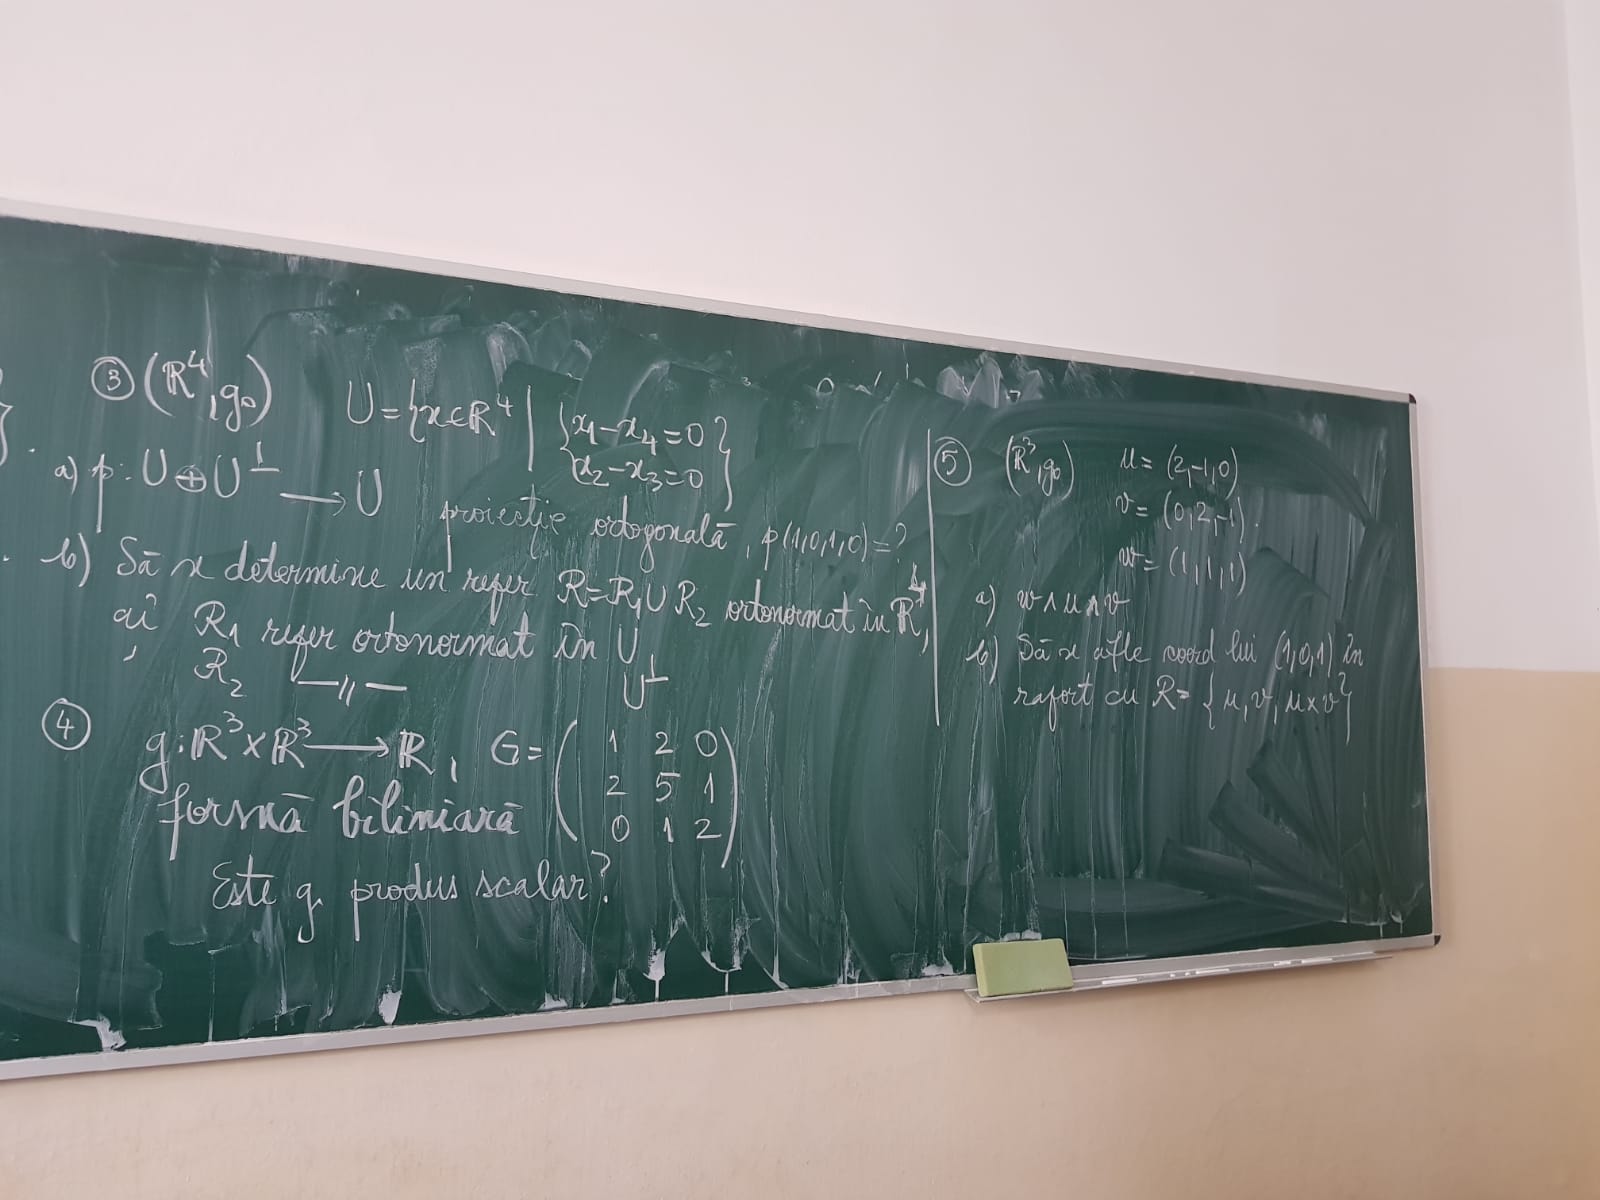 ③ (ℝ⁴, g₀) U = {x∈ℝ⁴ | {x₁-x₄=0
x₂-x₃=0}
a) p: U⊕U^⊥ → U proiecție ortogonală, p(1,0,1,0)=?
b) Să se determine un reper R=R₁∪R₂ ortonormat în ℝ⁴,
aî R₁ reper ortonormat în U
R₂ —〃— U^⊥
④ g: ℝ³×ℝ³ → ℝ, G = ( 1 2 0
2 5 1
0 1 2 )
formă biliniară
Este g produs scalar?
⑤ (ℝ³, g₀) u = (2,-1,0)
v = (0,2,-1).
w = (1,1,1)
a) w∧u∧v
b) Să se afle coord lui (1,0,1) în
raport cu R= {u, v, u×v}